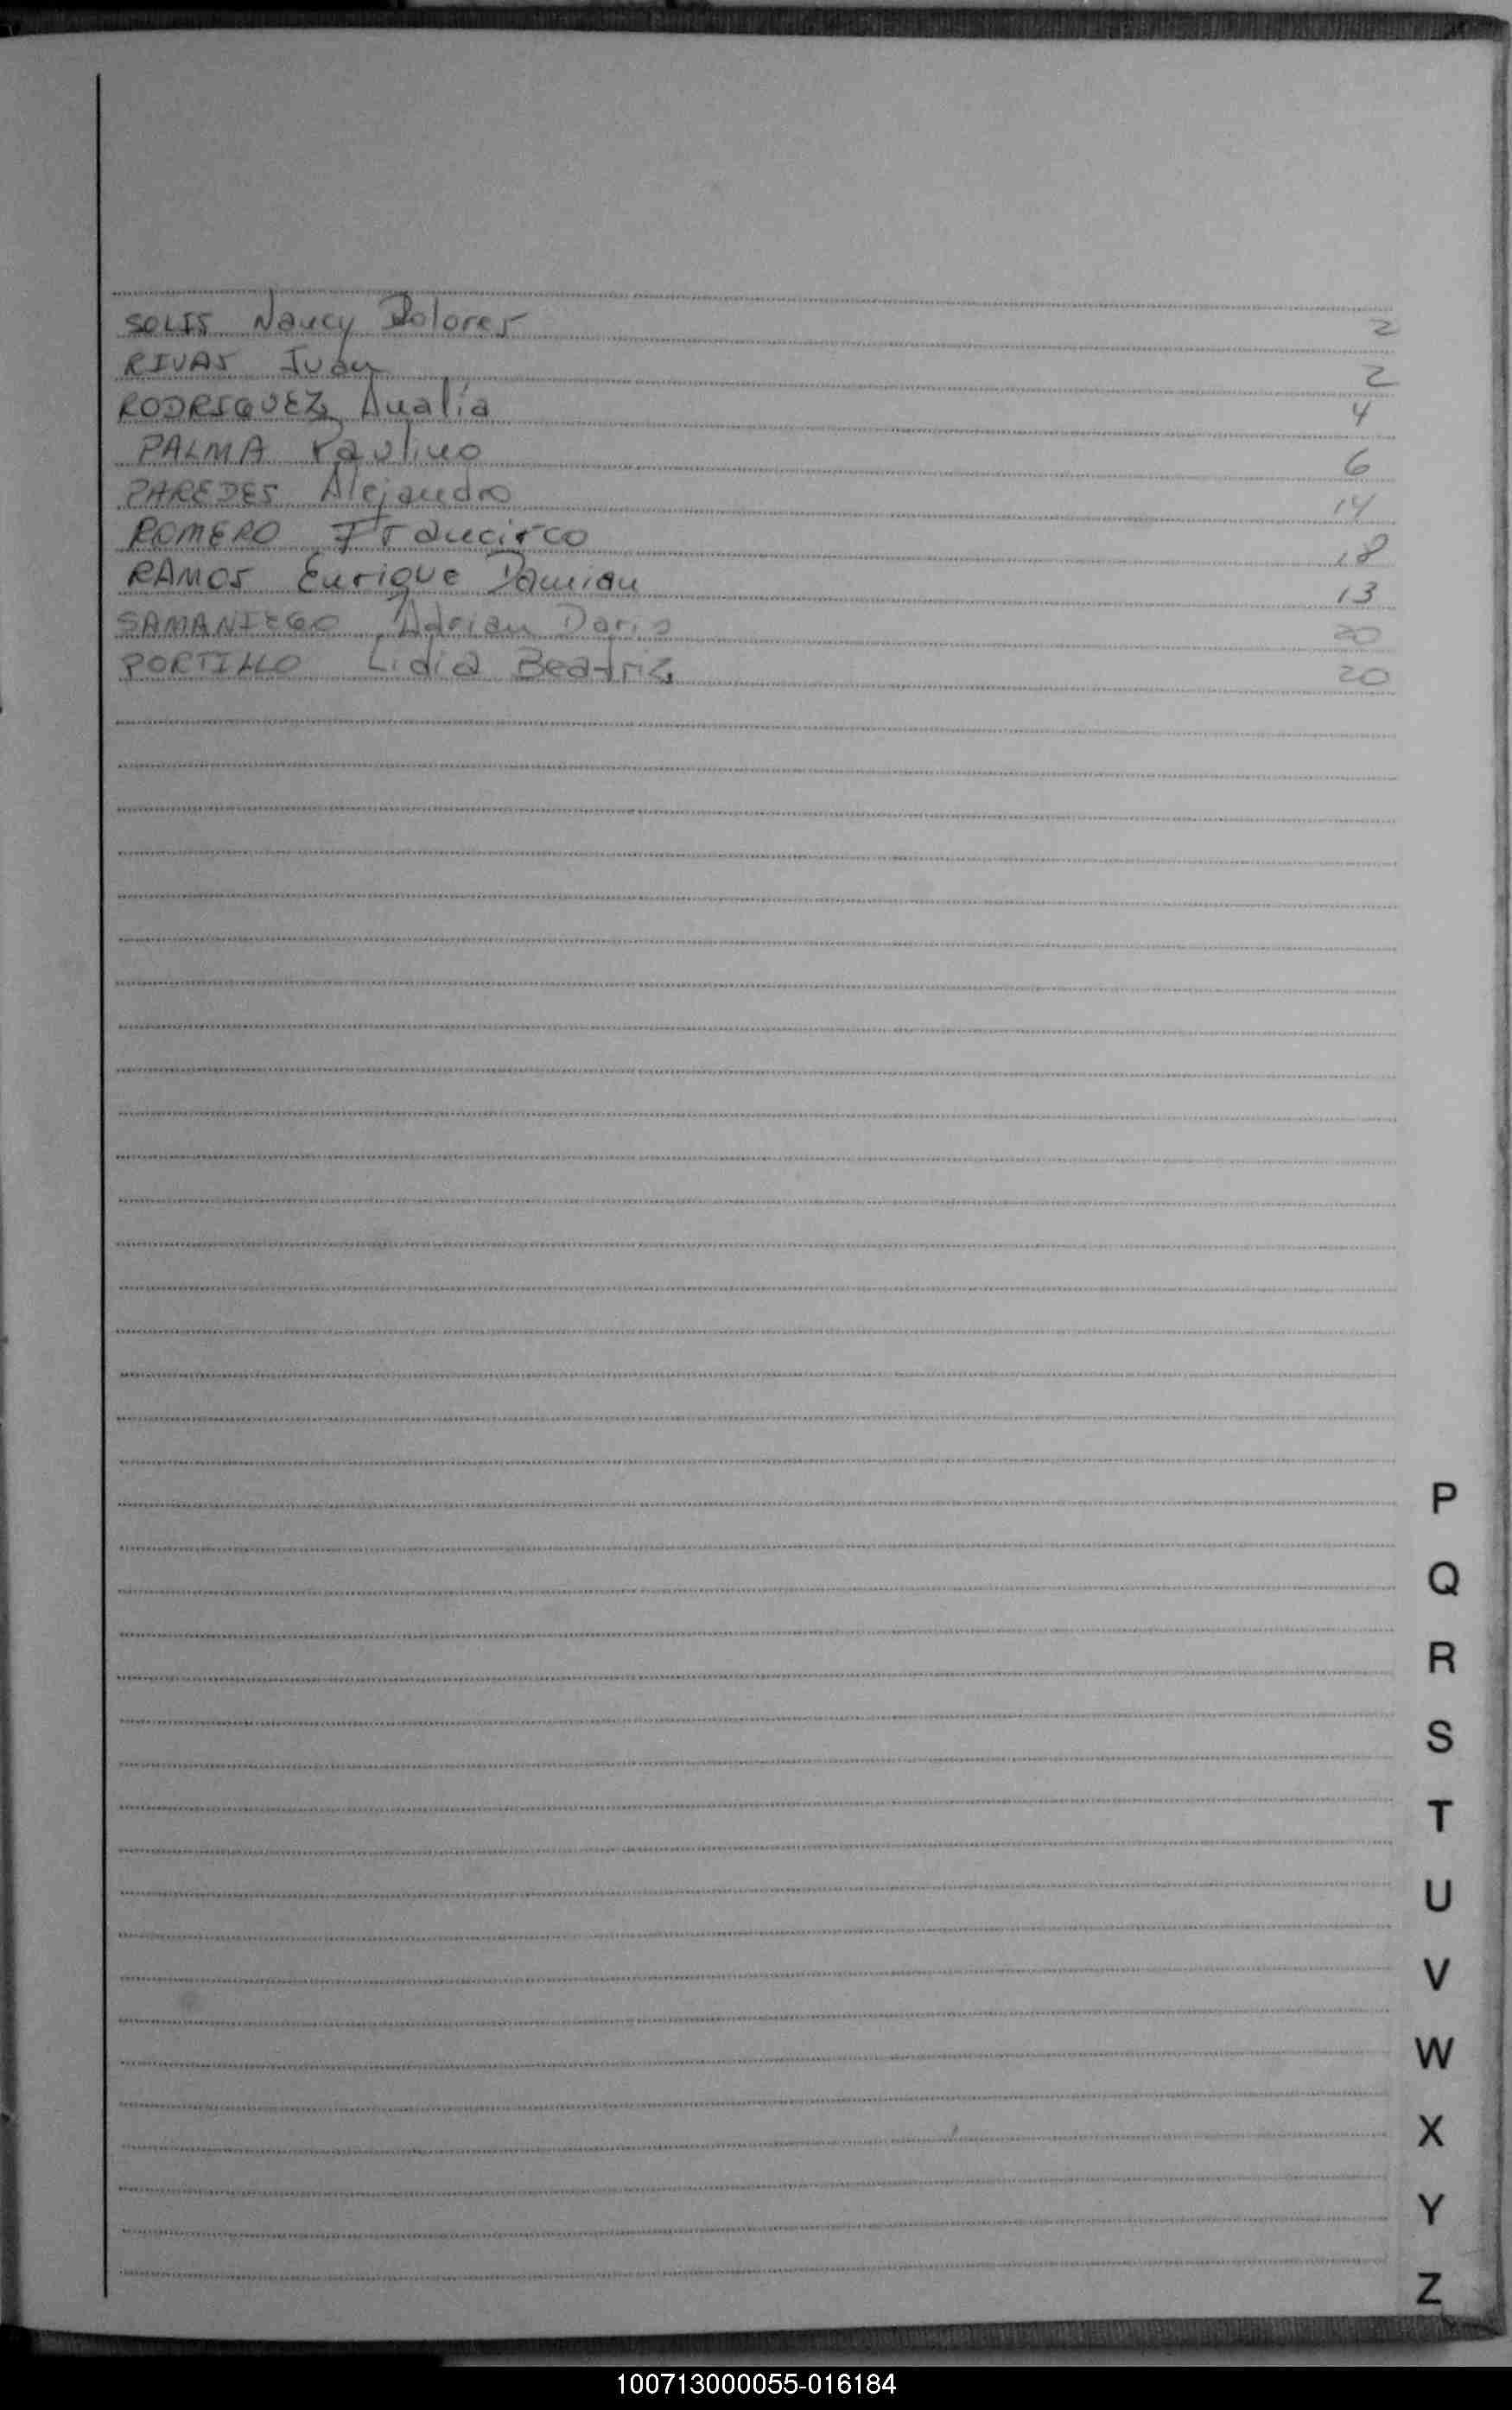 SOLIS Nancy Dolores 2
RIVAS Iván 2
RODRIGUEZ Analía 4
PALMA Paulino 6
PAREDES Alejandro 14
ROMERO Francisco 18
RAMOS Enrique Damian 13
SAMANIEGO Adrian Dario 20
PORTILLO Lidia Beatriz 20
P
Q
R
S
T
U
V
W
X
Y
Z
100713000055-016184